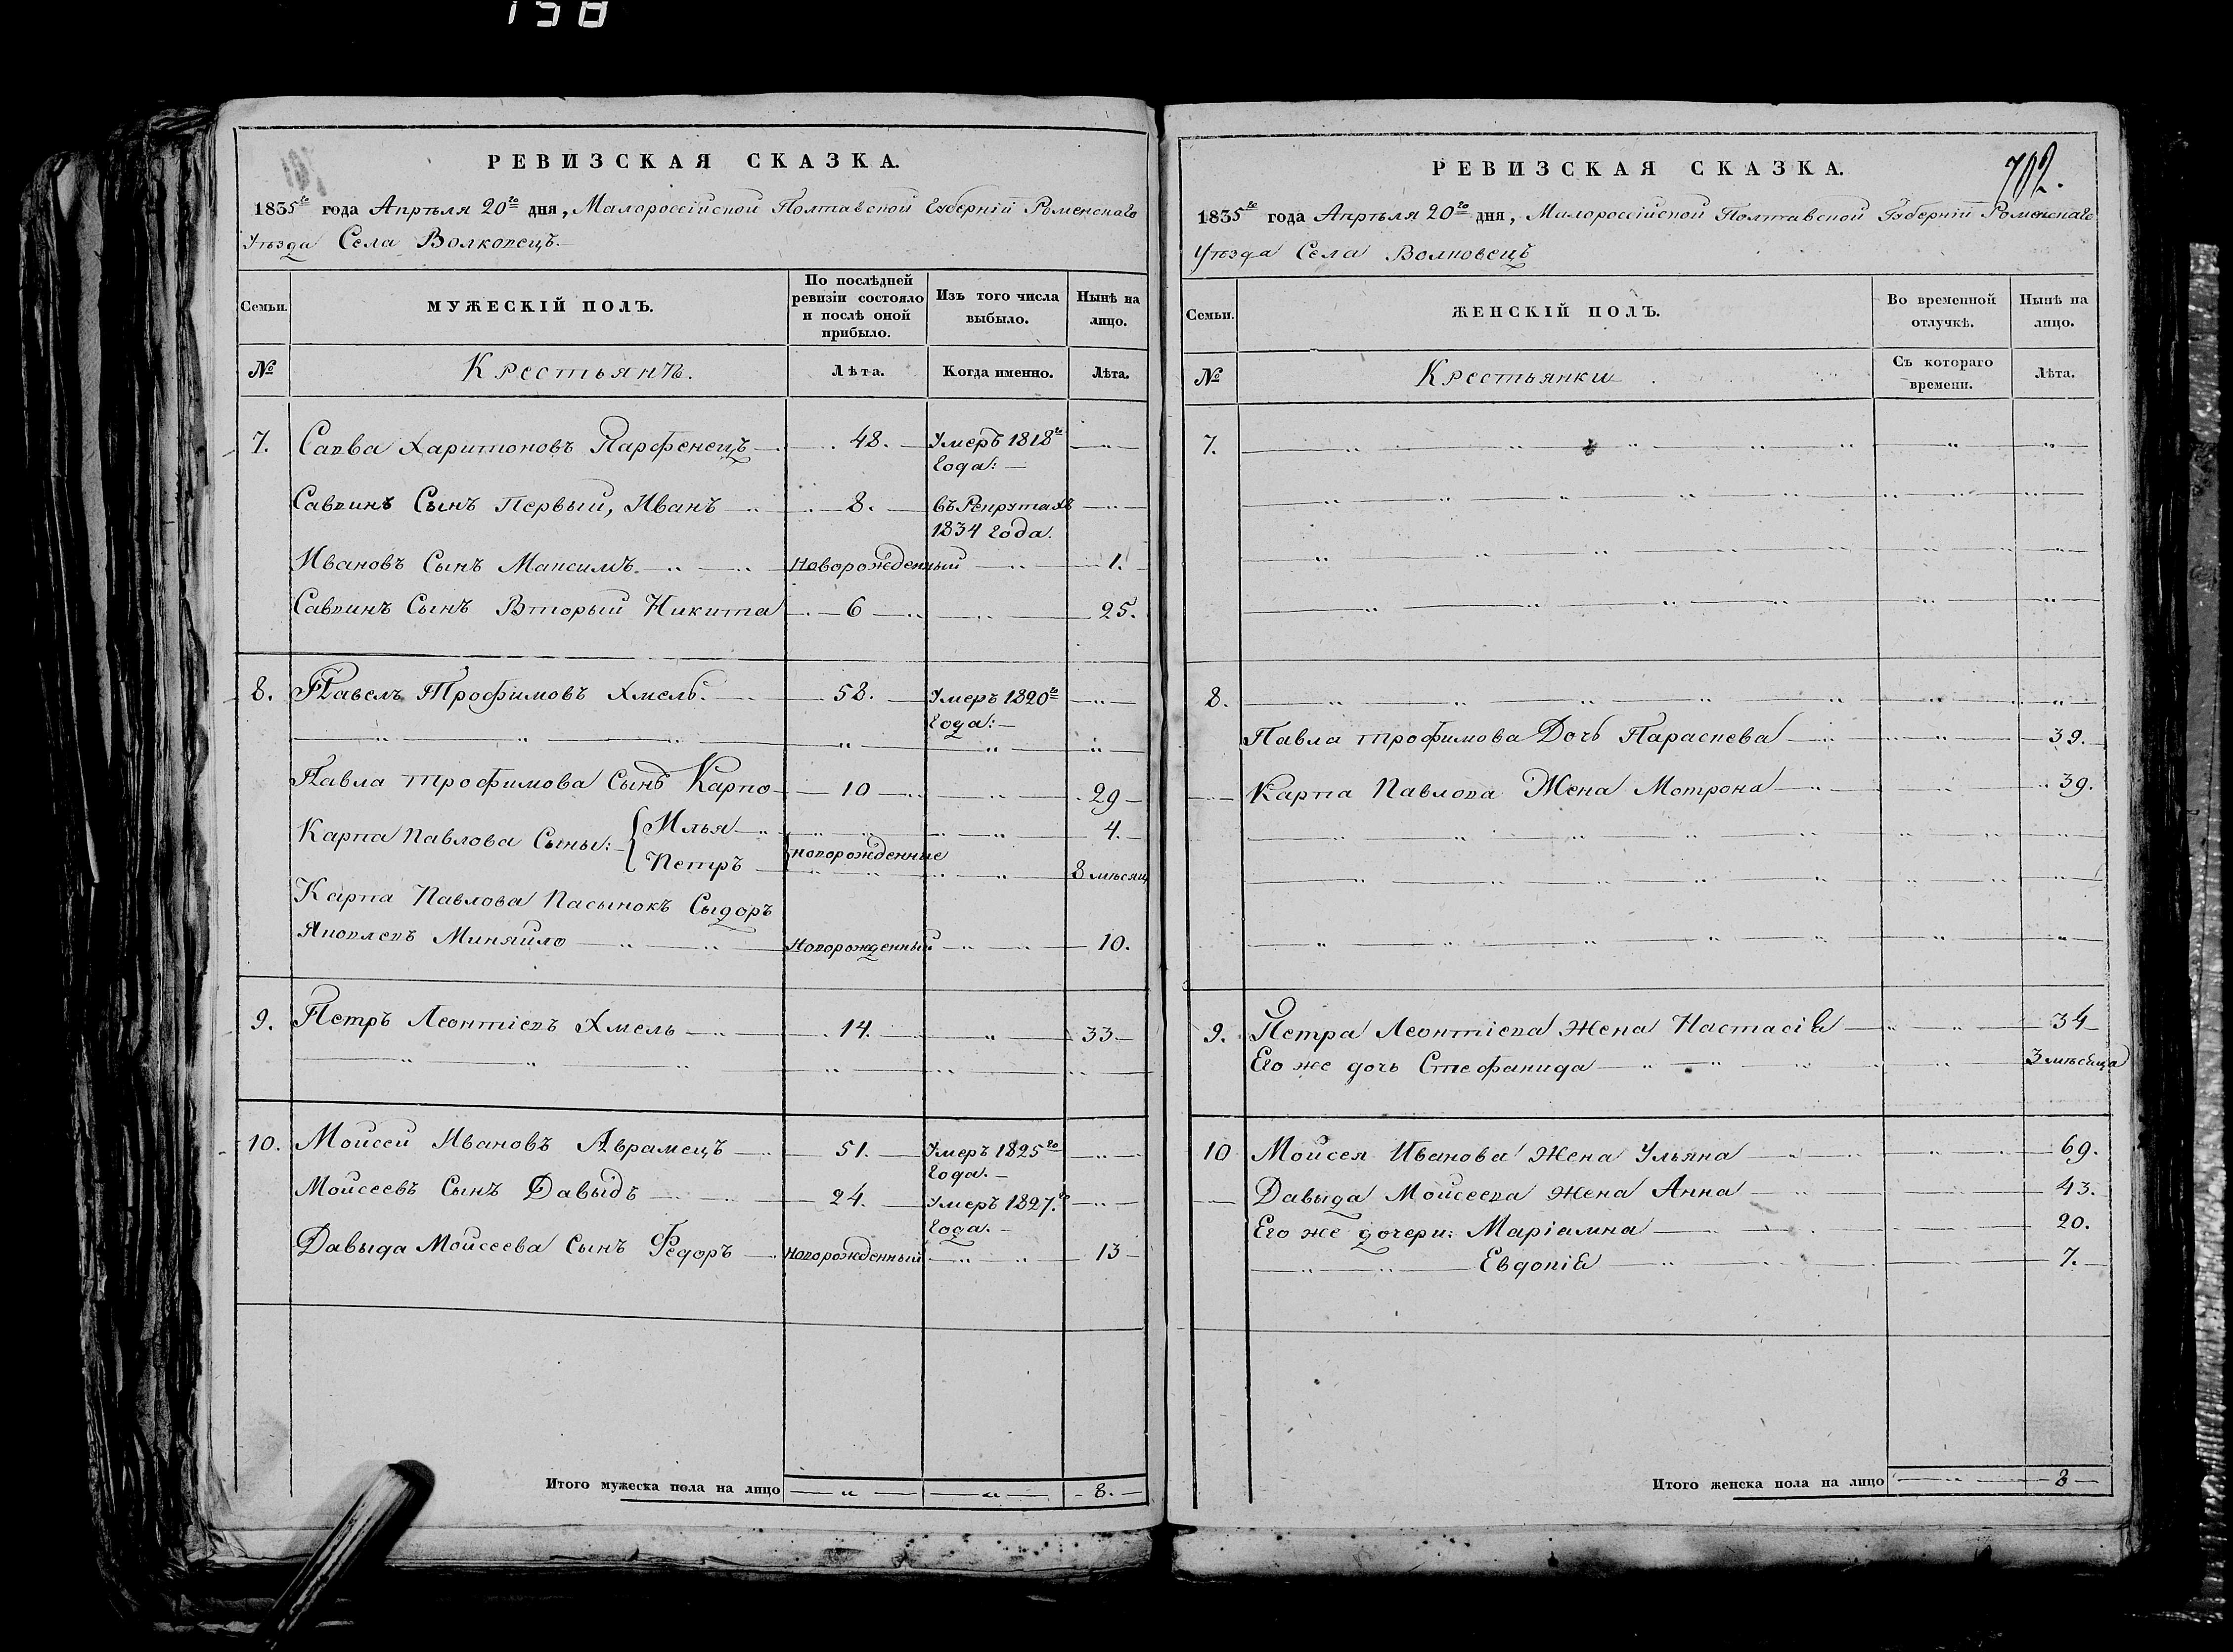 158
РЕВИЗСКАЯ СКАЗКА.
1835го года Апрѣля 20го дня, Малороссійской Полтавской Губерніи Роменскаго
Уѣзда Села Волковецъ.
Семьи.
МУЖЕСКІЙ ПОЛЪ.
По послѣдней ревизіи состояло и послѣ оной прибыло.
Изъ того числа выбыло.
Нынѣ на лицо.
№
Крестьянъ.
Лѣта.
Когда именно.
Лѣта.
7. Савва Харитоновъ Парфенецъ 48. Умеръ 1818го
года:
Саввинъ Сынъ Первый, Иванъ 8. въ Рекрутахъ
1834 года.
Ивановъ Сынъ Максимъ Новорожденный 1.
Саввинъ Сынъ Вторый Никита 6 25.
8. Павелъ Трофимовъ Хмель. 58. Умеръ 1820го
года:
Павла Трофимова Сынъ Карпо 10 29
Карпа Павлова Сыны: Илья 4.
новорожденные
Петръ 8 мѣсяц
Карпа Павлова Пасынокъ Сыдоръ
Яковлевъ Миняйло Новорожденный 10.
9. Петръ Леонтіевъ Хмель 14. 33
10. Моисей Ивановъ Аврамецъ 51. Умеръ 1825го
года.
Моисеевъ Сынъ Давыдъ 24. Умеръ 1827го
года.
Давыда Моисеева Сынъ Федоръ Новорожденный 13
Итого мужеска пола на лицо 8.
РЕВИЗСКАЯ СКАЗКА.
702.
1835го года Апрѣля 20го дня, Малороссійской Полтавской Губерніи Роменскаго
Уѣзда Села Волковецъ
Семьи.
ЖЕНСКІЙ ПОЛЪ.
Во временной отлучкѣ.
Нынѣ на лицо.
№
Крестьянки
Съ котораго времени.
Лѣта.
7.
8.
Павла Трофимова Дочь Параскева 39.
Карпа Павлова Жена Мотрона 39.
9. Петра Леонтіева Жена Настасія 34
Его же дочь Стефанида 3 мѣсяца
10 Моисея Иванова Жена Ульяна 69.
Давыда Моисеева Жена Анна 43.
Его же дочери: Маріамна 20.
Евдокія 7.
Итого женска пола на лицо 8